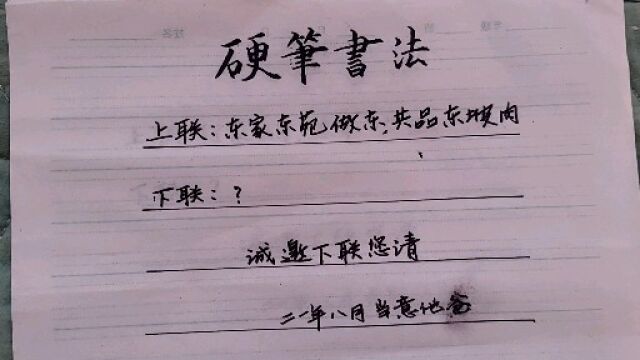 硬筆書法
上联：东家东苑做东，共品东坡肉
下联：？
诚邀下联您请
二一年八月当意他爸